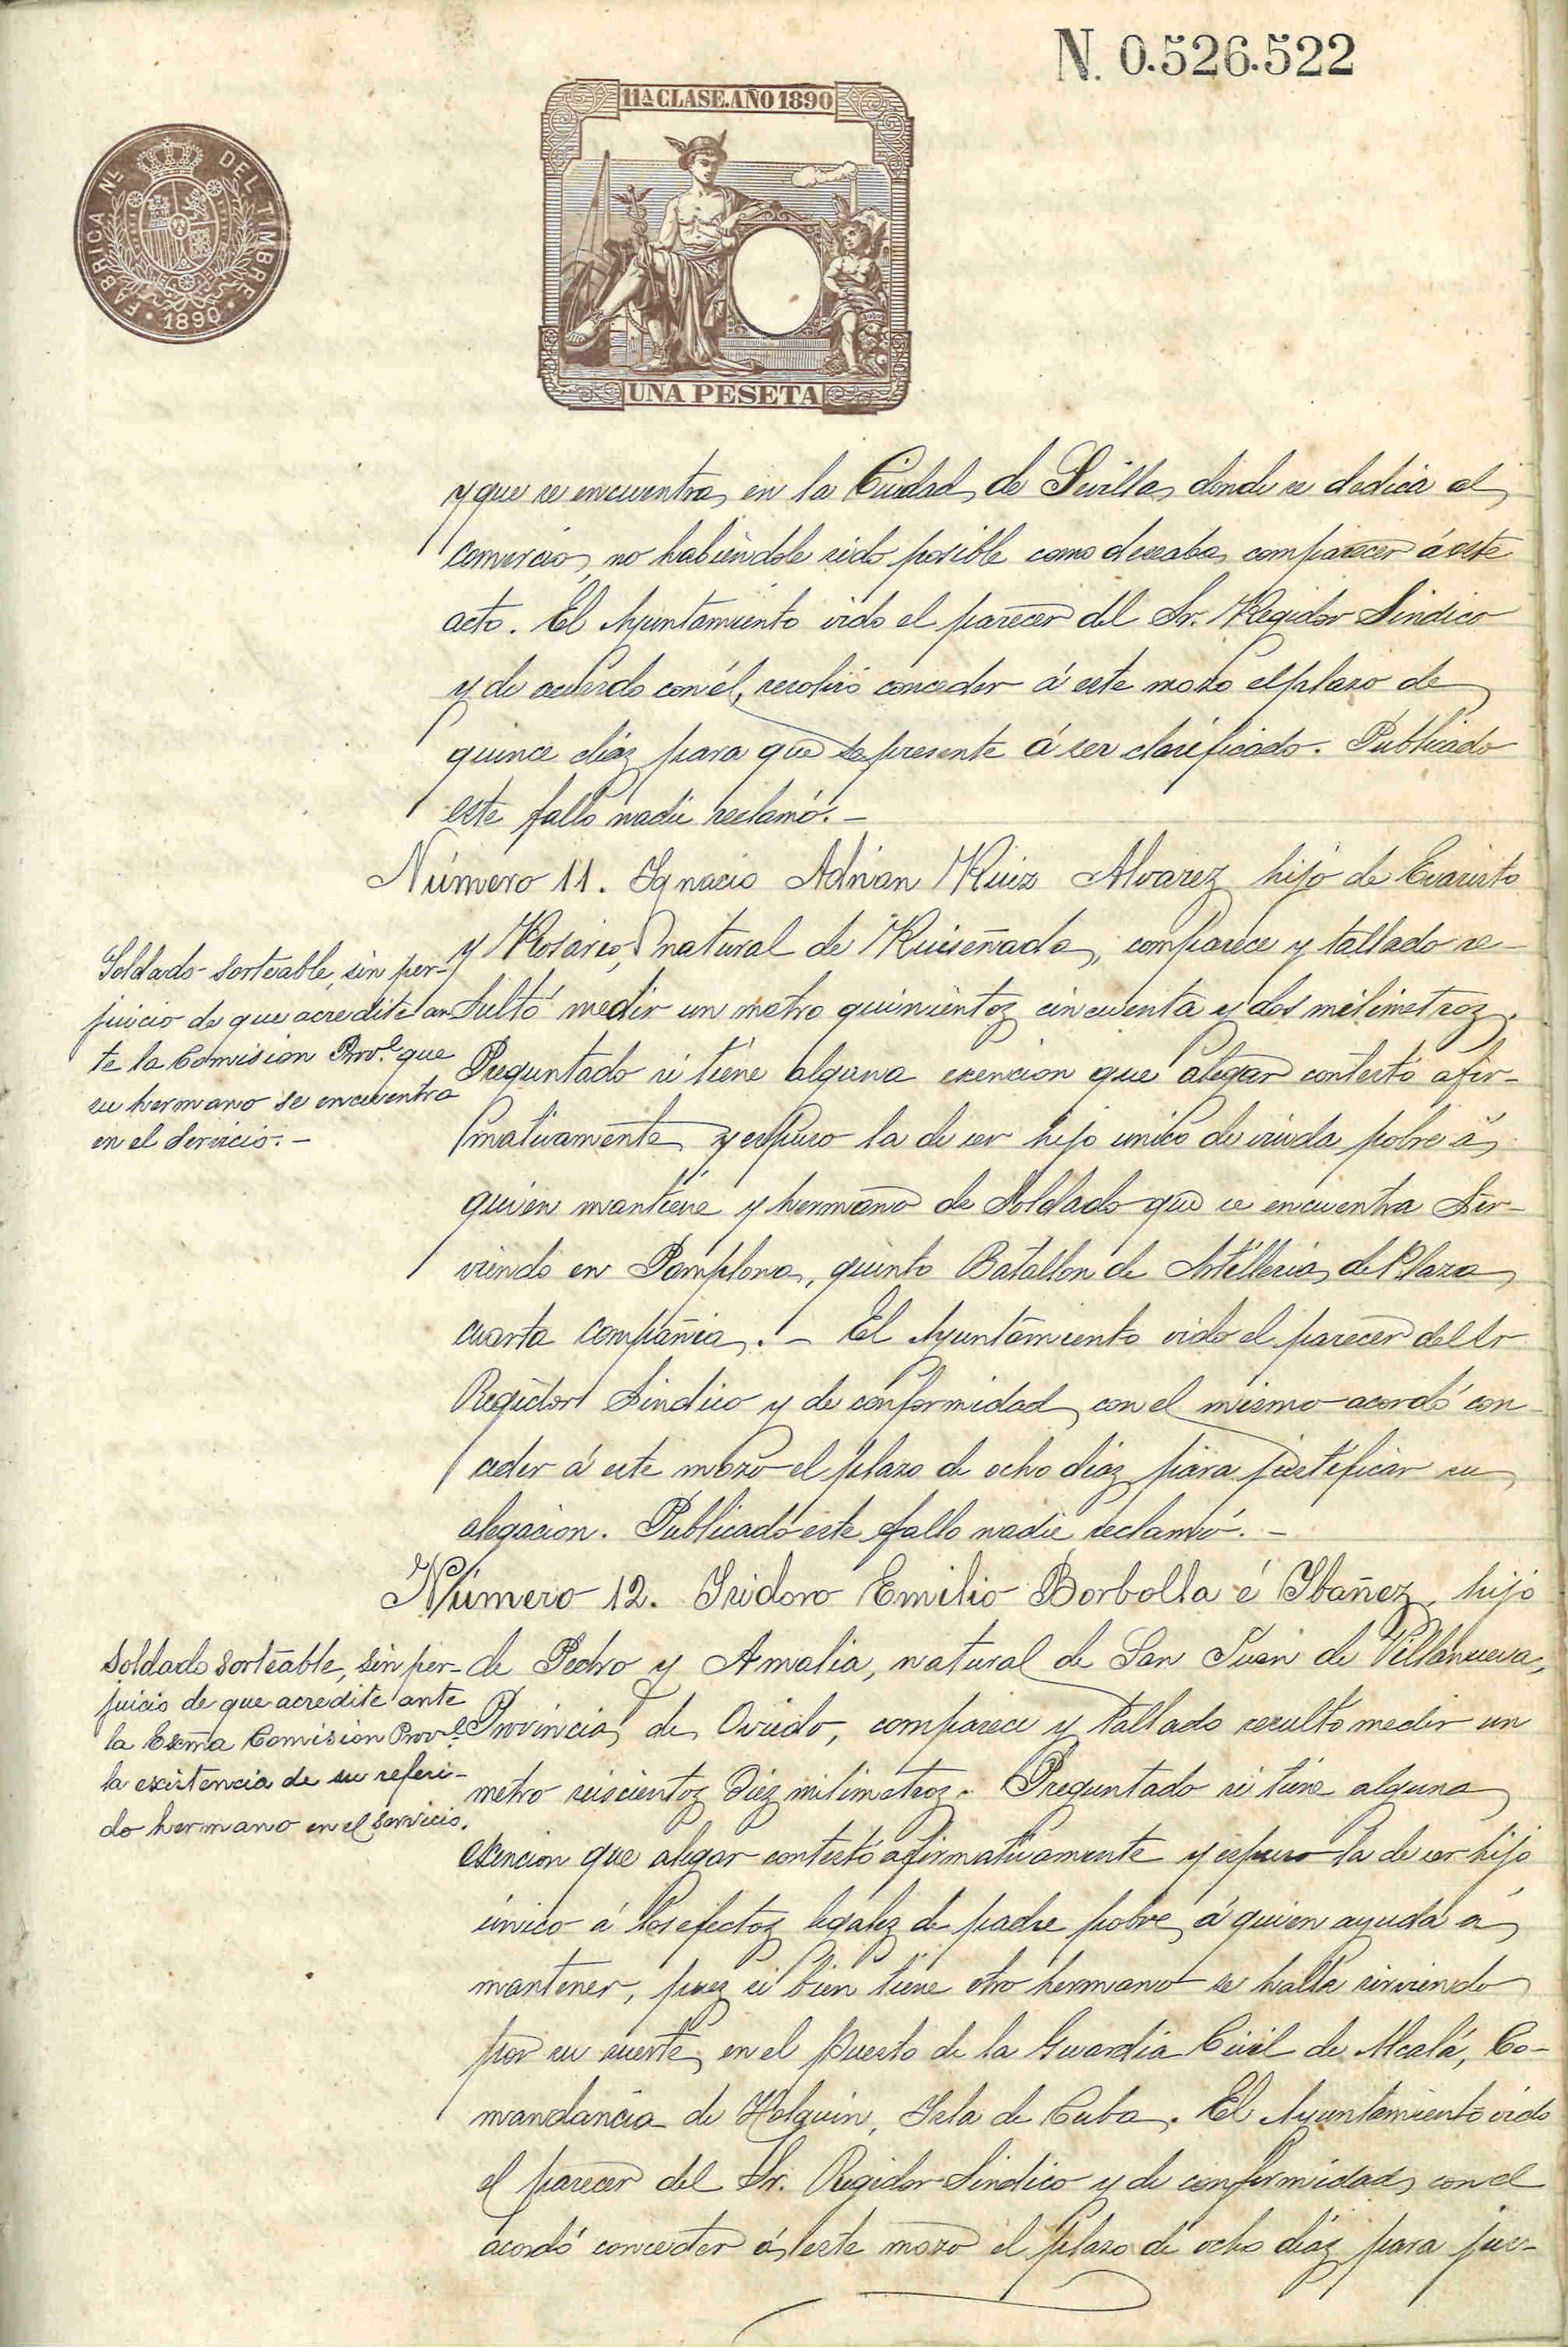 N. 0.526.522
11ª CLASE. AÑO 1890
FABRICA Nᴸ DEL TIMBRE
1890
UNA PESETA
y que se encuentra, en la Ciudad de Sevilla, donde se dedica al
comercio, no habiéndole sido posible como deseaba, comparecer á este
acto. El Ayuntamiento oido el parecer del Sr. Regidor Sindico
y de acuerdo con él, resolvió conceder á este mozo el plazo de
quince diaz para que se presente á ser clasificado. Publicado
este fallo nadie reclamó. —
Número 11. Ignacio Adrian Ruiz Alvarez hijo de Evaristo
y Rosario, natural de Ruiseñada, comparece y tallado re-
sultó medir un metro quinientoz cincuenta y dos milimetroz.
Preguntado si tiene alguna exencion que alegar contestó afir-
mativamente y expuso la de ser hijo unico de viuda pobre á
quien mantiene y hermano de Soldado que se encuentra Ser-
viendo en Pamplona, quinto Batallon de Artilleria de Plaza,
cuarta compañia. — El Ayuntamiento oido el parecer del Sr
Regidor Sindico y de conformidad con el mismo acordó con-
ceder á este mozo el plazo de ocho diaz para justificar su
alegacion. Publicado este fallo nadie reclamó. —
Soldado sorteable, sin per-
juicio de que acredite an
te la Comision Prov.ˡ que
su hermano se encuentra
en el servicio. —
Número 12. Isidoro Emilio Borbolla é Ybañez, hijo
de Pedro y Amalia, natural de San Juan de Villanueva,
Provincia de Oviedo, comparece y tallado resultó medir un
metro seiscientoz Diez milimetroz. Preguntado si tiene alguna
exencion que alegar contestó afirmativamente y expuso la de ser hijo
único á los efectoz legalez de padre pobre, á quien ayuda á
mantener, puez si bien tiene otro hermano se halla sirviendo
por su suerte, en el puesto de la Guardia Civil de Alcalá, Co-
mandancia de Holguin, Isla de Cuba. El Ayuntamiento oido
el parecer del Sr. Regidor Sindico y de conformidad con el
acordó conceder á este mozo el plazo de ocho diaz para jus-
Soldado sorteable, sin per-
juicio de que acredite ante
la Exma Comision Prov.ˡ
la existencia de su referi-
do hermano en el servicio.